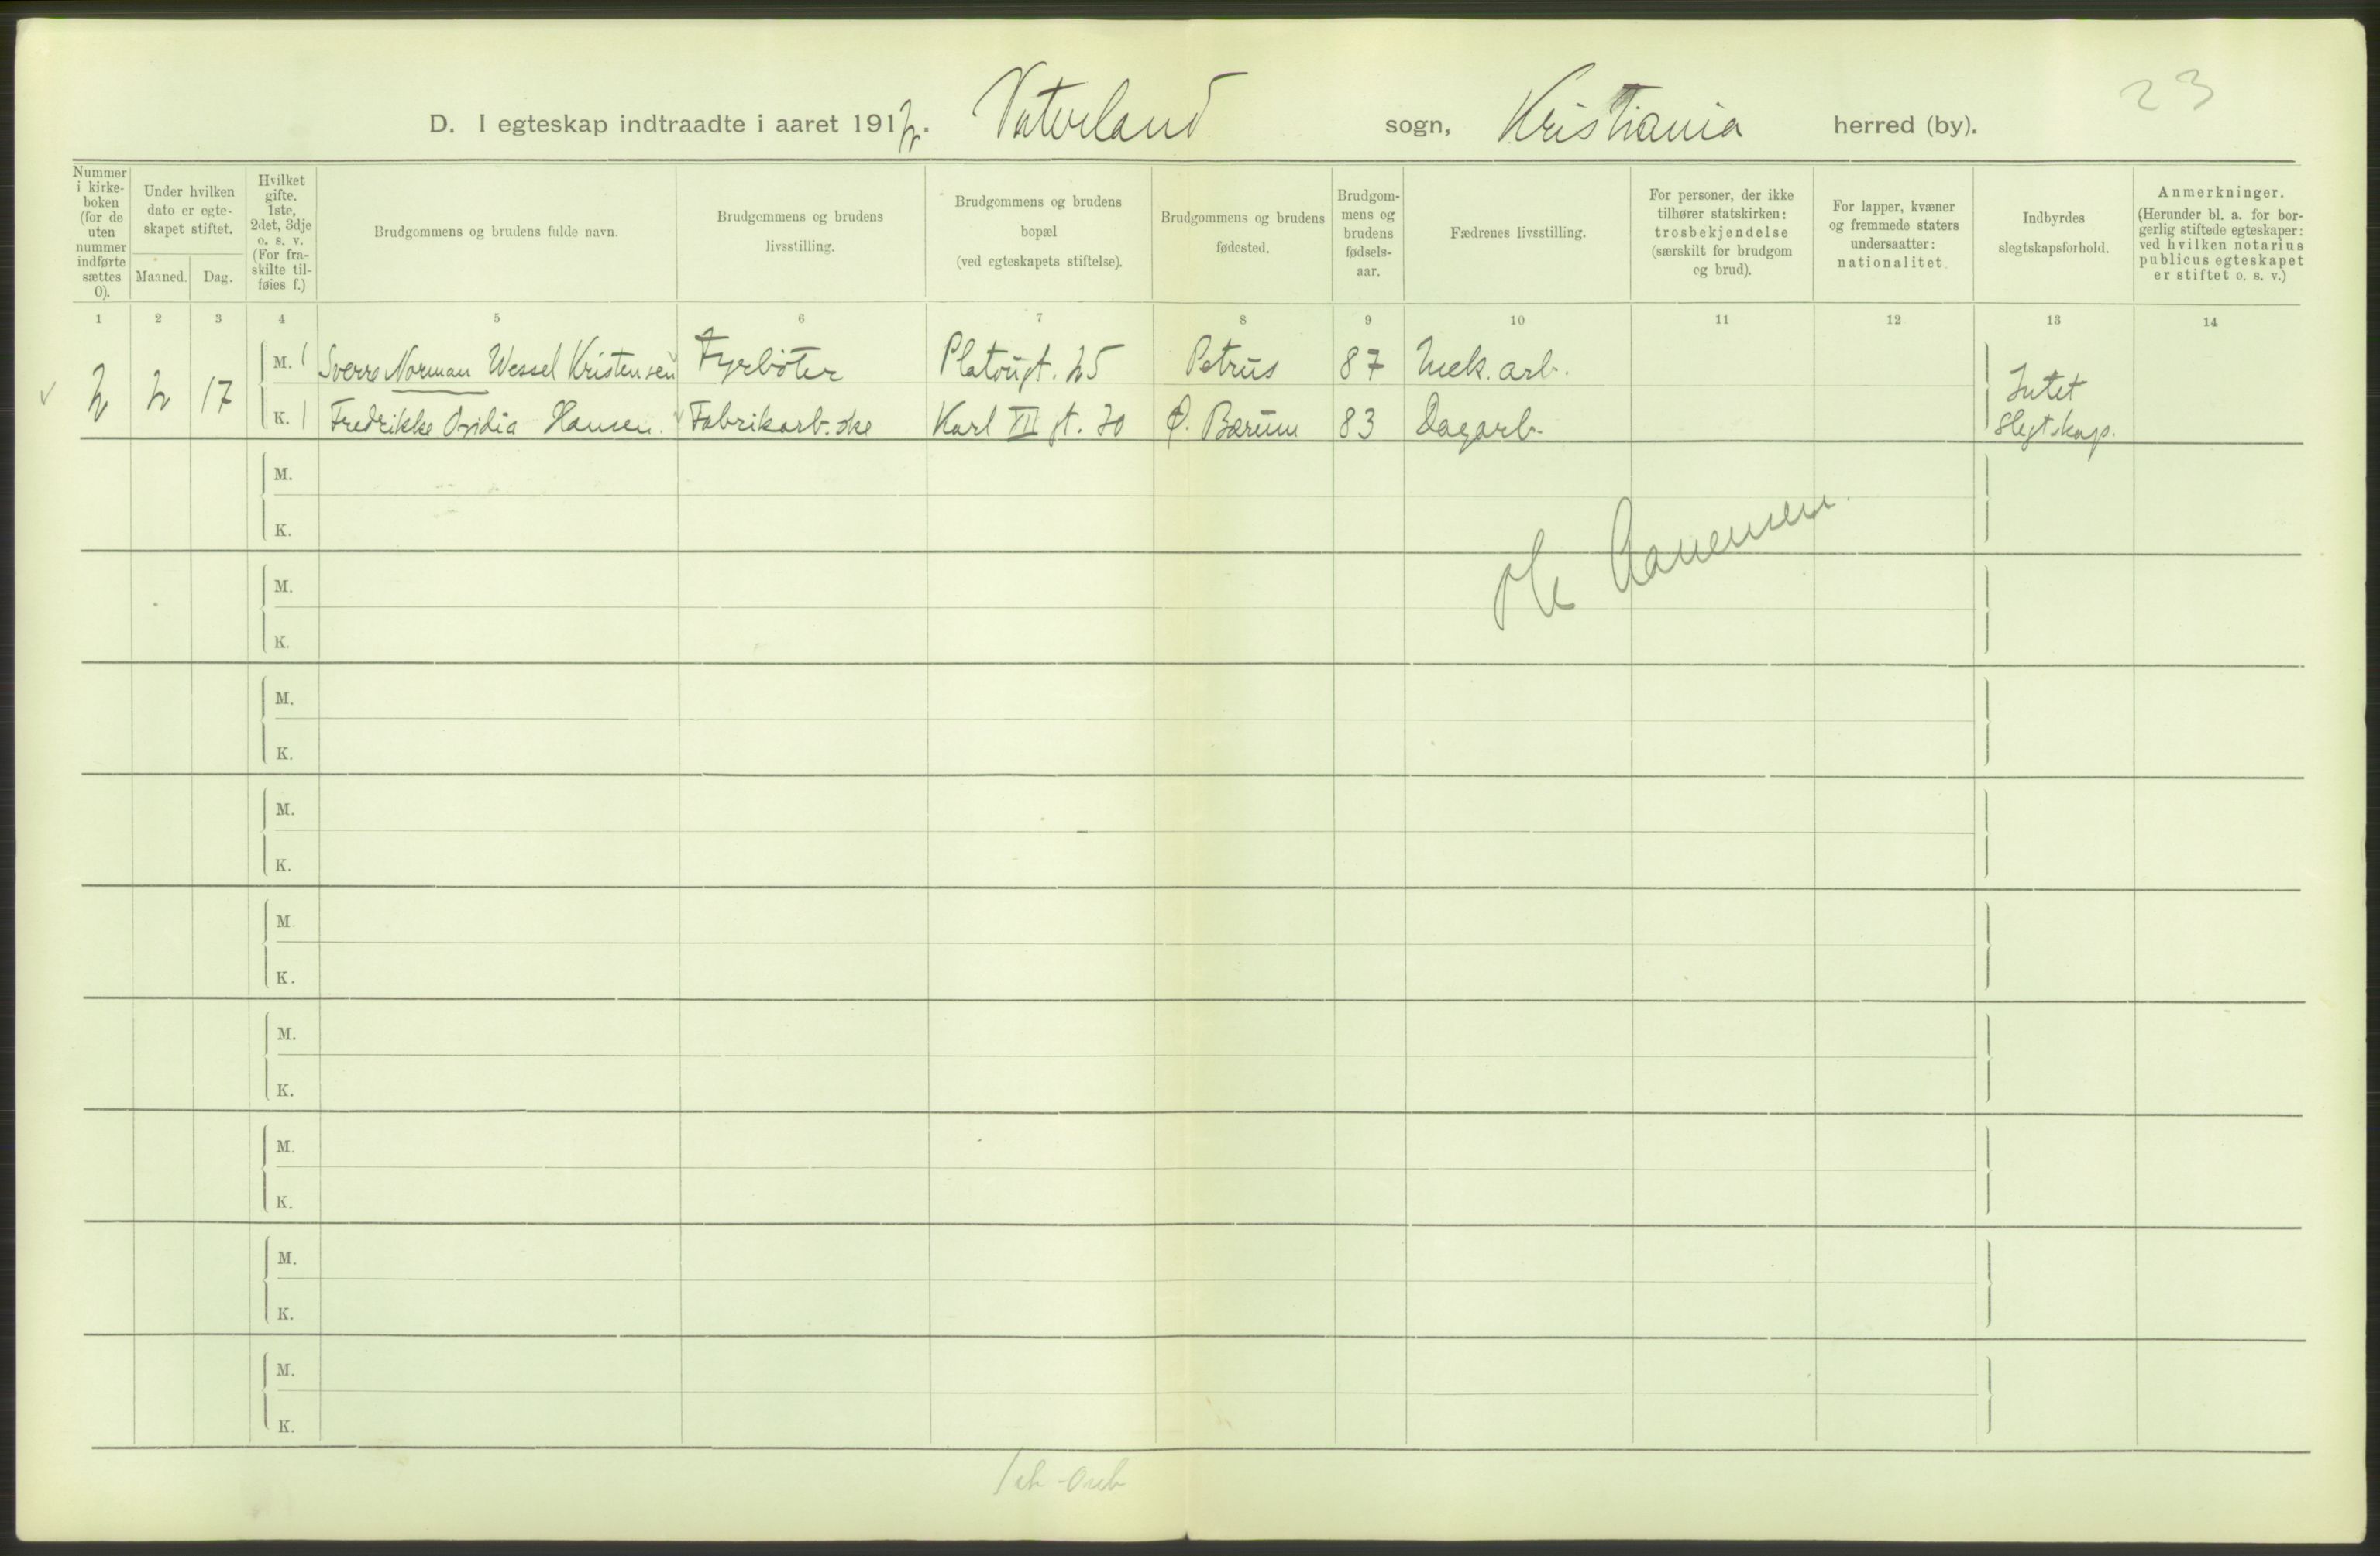 23
D. I egteskap indtraadte i aaret 1912. Vaterland sogn, Kristiania herred (by).
Nummer i kirke- boken (for de uten nummer indførte sættes 0).
Under hvilken dato er egte- skapet stiftet.
Maaned. Dag.
Hvilket gifte. 1ste, 2det, 3dje o. s. v. (For fra- skilte til- føies f.)
Brudgommens og brudens fulde navn.
Brudgommens og brudens livsstilling.
Brudgommens og brudens bopæl (ved egteskapets stiftelse).
Brudgommens og brudens fødested.
Brudgom- mens og brudens fødsels- aar.
Fædrenes livsstilling.
For personer, der ikke tilhører statskirken: trosbekjendelse (særskilt for brudgom og brud).
For lapper, kvæner og fremmede staters undersaatter: nationalitet.
Indbyrdes slegtskapsforhold.
Anmerkninger. (Herunder bl. a. for bor- gerlig stiftede egteskaper: ved hvilken notarius publicus egteskapet er stiftet o. s. v.)
1 2 3 4 5 6 7 8 9 10 11 12 13 14
M. 1 Sverre Norman Wessel Kristensen Fyrbøter Platougt. 25 Petrus 87 Mek. arb.
2 2 17 Intet
K. 1 Fredrikke Hansen. Fabrikarb.ske Karl XII gt. 20 Ø. Bærum 83 Dagarb. Slegtskap.
M.
K.
Aanensen.
M.
K.
M.
K.
M.
K.
M.
K.
M.
K.
M.
K.
M.
K.
M.
K.